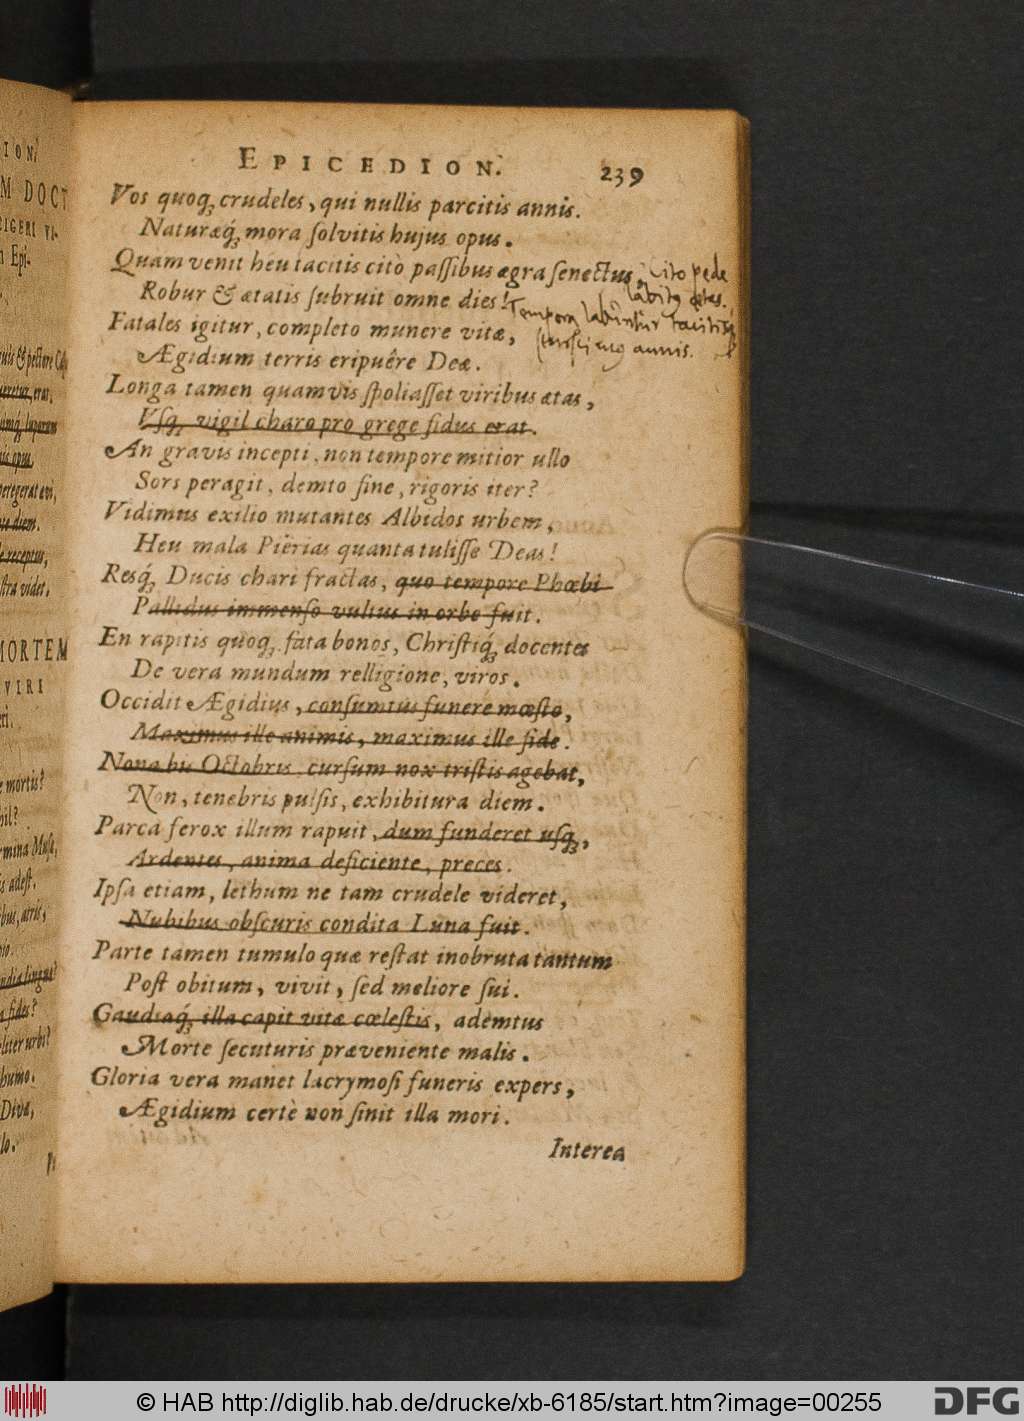 EPICEDION. 239
Vos quoq́; crudeles, qui nullis parcitis annis.
Naturæq́; mora ſolvitis hujus opus.
Quam venit heu tacitis citò paſſibus ægra ſenectus,
Robur & ætatis ſubruit omne dies!
Cito pede
labitq ætas.
Tempora labuntur tacitisq́;
ſeneſcimus annis.
Fatales igitur, completo munere vitæ,
Ægidium terris eripuêre Deæ.
Longa tamen quamvis ſpoliaſſet viribus ætas,
Vſq́; vigil charo pro grege fidus erat.
An gravis incepti, non tempore mitior ullo
Sors peragit, demto fine, rigoris iter?
Vidimus exilio mutantes Albidos urbem,
Heu mala Piërias quanta tuliſſe Deas!
Resq́; Ducis chari fractas, quo tempore Phœbi
Pallidus immenſo vultus in orbe fuit.
En rapitis quoq́; fata bonos, Chriſtiq́; docentes
De vera mundum relligione, viros.
Occidit Ægidius, conſumtus funere mœſto,
Maximus ille animis, maximus ille fide.
Nona bis Octobris curſum nox triſtis agebat,
Non, tenebris pulſis, exhibitura diem.
Parca ferox illum rapuit, dum funderet uſq́;,
Ardentes, anima deficiente, preces.
Ipſa etiam, lethum ne tam crudele videret,
Nubibus obſcuris condita Luna fuit.
Parte tamen tumulo quæ reſtat inobruta tantum
Poſt obitum, vivit, ſed meliore ſui.
Gaudiaq́; illa capit vitæ cœleſtis, ademtus
Morte ſecuturis præveniente malis.
Gloria vera manet lacrymoſi funeris expers,
Ægidium certè non ſinit illa mori.
Interea
© HAB http://diglib.hab.de/drucke/xb-6185/start.htm?image=00255
DFG